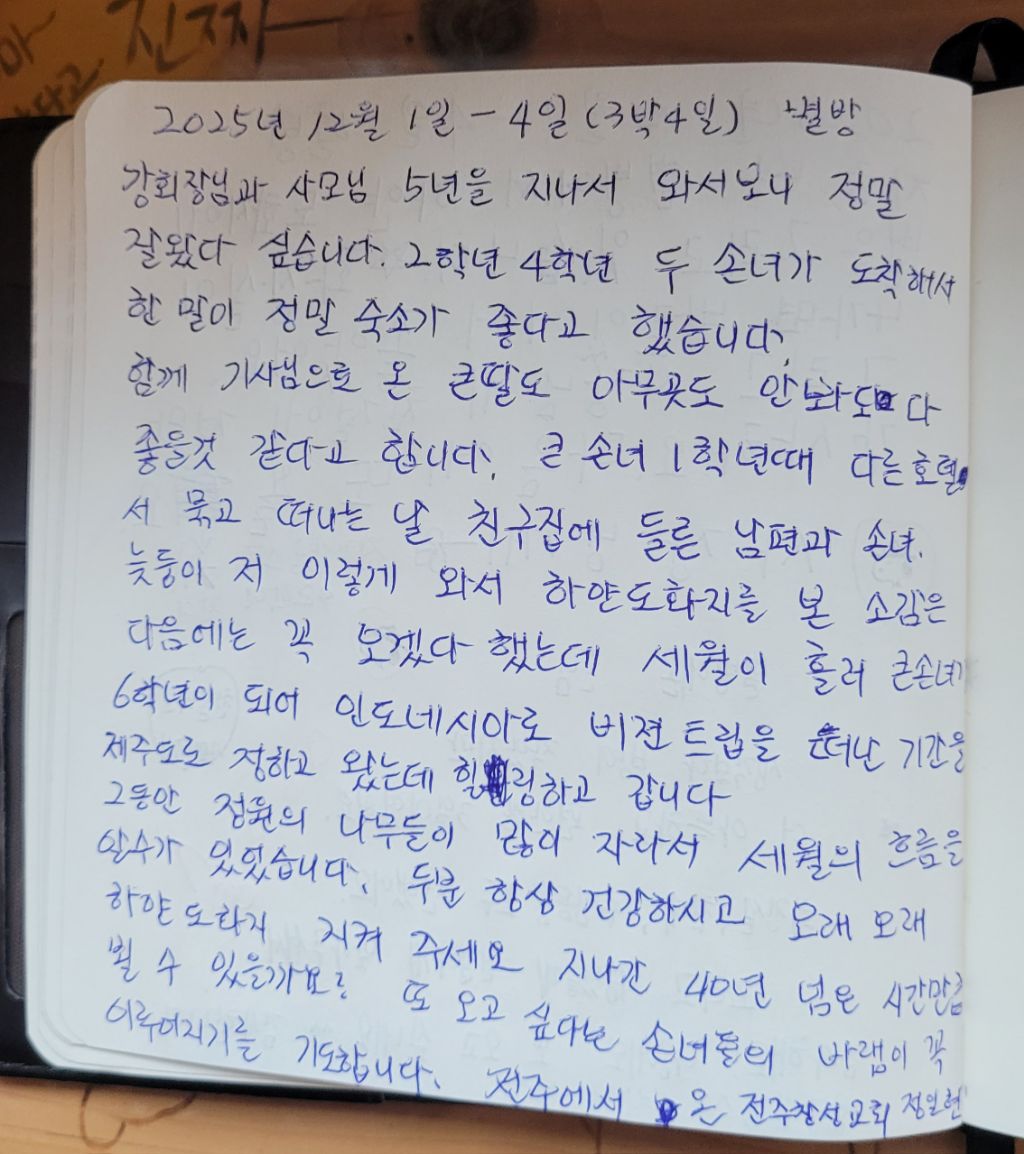 진짜
2025년 12월 1일 - 4일 (3박4일) 별방
강회장님과 사모님 5년을 지나서 와서보니 정말
잘왔다 싶습니다. 2학년 4학년 두 손녀가 도착해서
한 말이 정말 숙소가 좋다고 했습니다.
함께 기사님으로 온 큰딸도 아무곳도 안봐도 다
좋을것 같다고 합니다. 큰 손녀 1학년때 다른호텔
서 묶고 떠나는 날 친구집에 들른 남편과 손녀.
늦둥이 저 이렇게 와서 하얀도화지를 본 소감은
다음에는 꼭 오겠다 했는데 세월이 흘러 큰손녀가
6학년이 되어 인도네시아로 비젼트립을 떠난 기간을
제주도로 정하고 왔는데 힐링하고 갑니다
그동안 정원의 나무들이 많이 자라서 세월의 흐름을
알수가 있었습니다. 두분 항상 건강하시고 오래오래
하얀도화지 지켜 주세요 지나간 40년 넘은 시간만큼
뵐 수 있을까요? 또 오고 싶다는 손녀들의 바램이 꼭
이루어지기를 기도합니다. 전주에서 온 전주창성교회